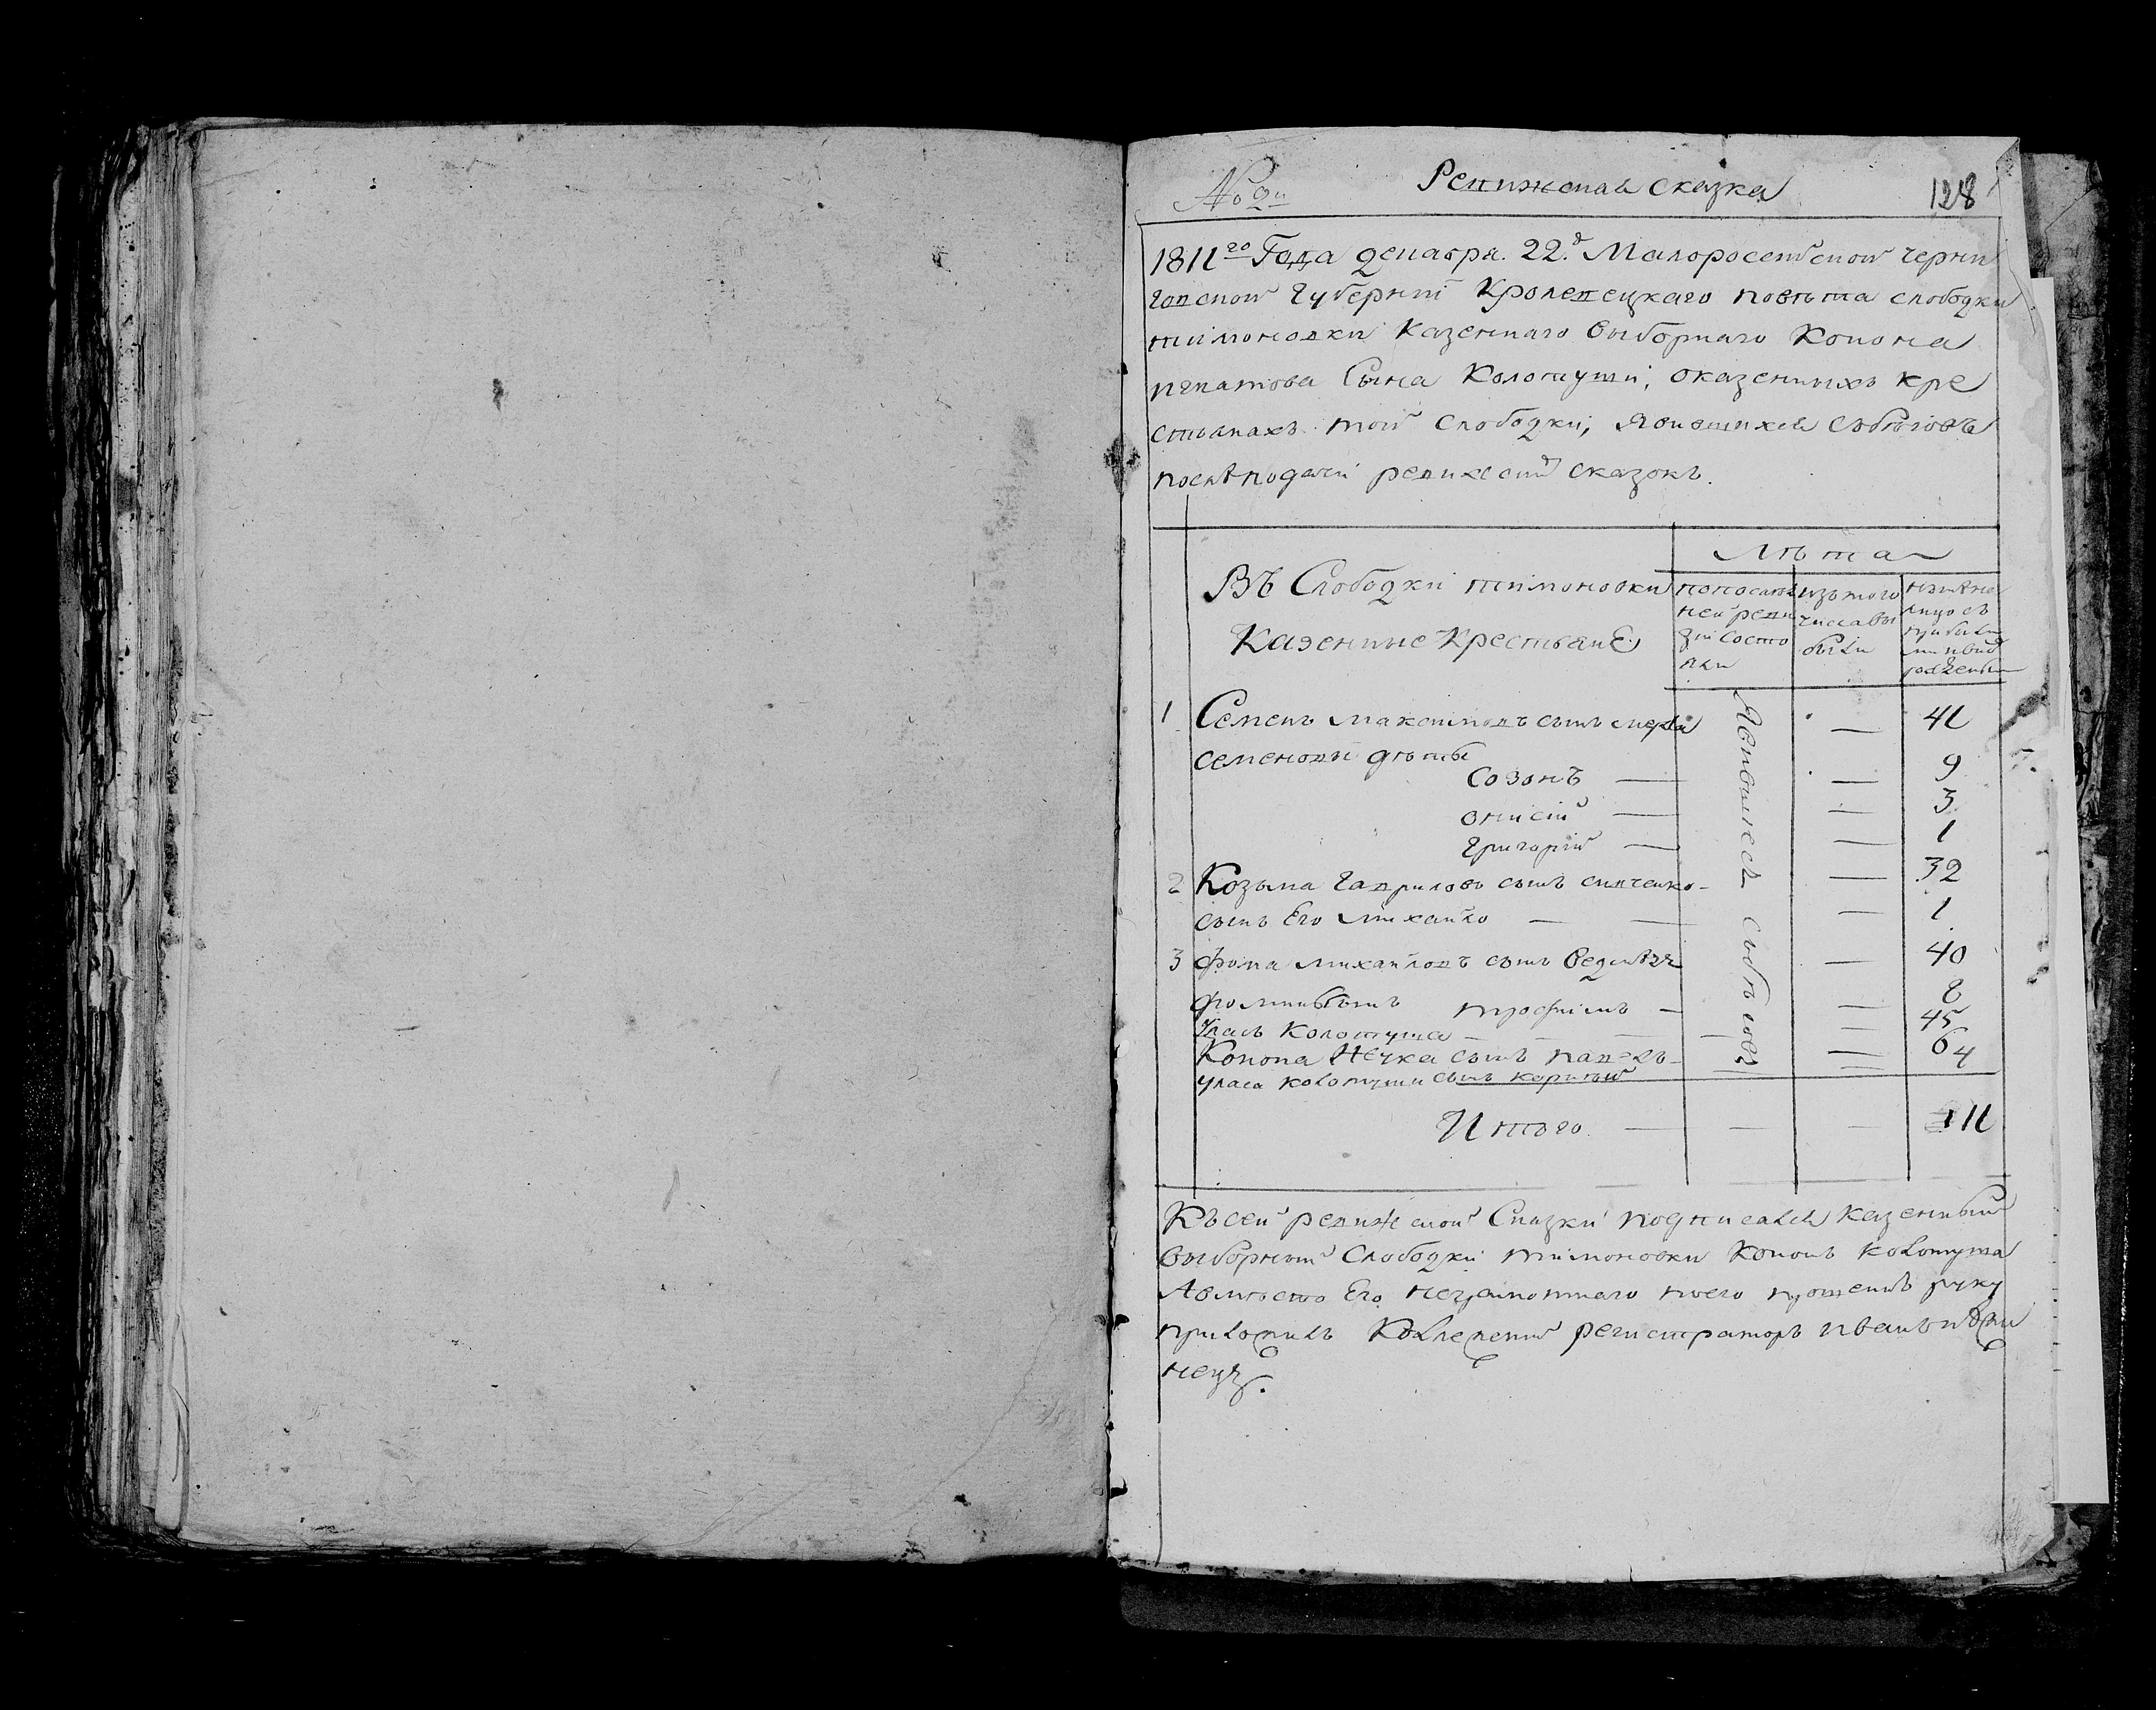 Ревижская сказка
128
1811го Года декабря. 22.д Малоросейской черни
говской Губерний Кролевецкаго повета слободки
тимоновки Казеннаго выборнаго Конона
игнатова Сына Колотуши, оказенныхъ кре
стьянахъ той слободки, Явившихся сбеговъ
послѣ подачи ревижской сказокъ.
Лѣта
ВЪ Слободки тимоновки
Казенные Крестьяне
попослед
ней реви
зіи состо
яли
изъ того
числа вы
были
ныне на
лицо съ
прибыли
ми и внов
рожденым
1 Семенъ максимовъ сынъ 41
семеновы дѣты
Созонъ — — 9
онисій — — 3
Григорій — — 1
2 Козьма Гавриловъ сынъ — 32
сынъ Его михайло — — 1
3 фома михайловъ сынъ — 40
фоминъ сынъ трофимъ — — 8
Уласъ Колотуша — — 45
Конона сынъ павелъ — — 6
Уласа Колотуши сынъ — 4
Явились сбѣговъ
Итого — — — 11
Къ сей ревижской Сказки подписался казенный
выборный Слободки тимоновки Кононъ Колотуша
Авместо Его неграмотнаго поего прошенію руку
приложилъ Колежский регистраторъ иванъ